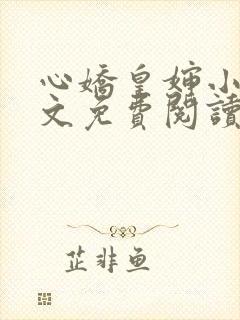 心嬌皇婶小
文免費閱讀
芷非鱼